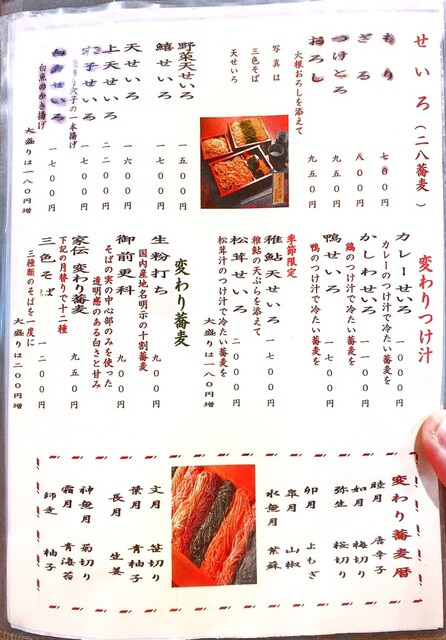 せいろ（二八蕎麦）
もり 七〇〇円
ざる 八〇〇円
つけとろ 九五〇円
おろし 九五〇円
大根おろしを添えて
写真は
三色そば
天せいろ
野菜天せいろ 一五〇〇円
鱚せいろ 一七〇〇円
天せいろ 一六〇〇円
上天せいろ 二二〇〇円
穴子の一本揚げ
白魚のかき揚げ
大盛りは一八〇円増
変わりつけ汁
カレーせいろ 一〇〇〇円
カレーのつけ汁で冷たい蕎麦を
かしわせいろ 一一〇〇円
鶏のつけ汁で冷たい蕎麦を
鴨せいろ 一七〇〇円
鴨のつけ汁で冷たい蕎麦を
季節限定
稚鮎天せいろ 一七〇〇円
稚鮎の天ぷらを添えて
松茸せいろ 二〇〇〇円
松茸のつけ汁で冷たい蕎麦を
大盛りは一八〇円増
変わり蕎麦
生粉打ち 九〇〇円
国内産地名明示の十割蕎麦
御前更科 九〇〇円
そばの実の中心部のみを使った
透明感のある白さと甘み
家伝 変わり蕎麦 九五〇円
下記の月替りで十二種
三色そば 一二〇〇円
三種類のそばを一度に
大盛りは二〇〇円増
変わり蕎麦暦
睦月 唐辛子
如月 梅切り
弥生 桜切り
卯月 よもぎ
皐月 山椒
水無月 紫蘇
文月 笹切り
葉月 青柚子
長月 生姜
神無月 菊切り
霜月 青海苔
師走 柚子